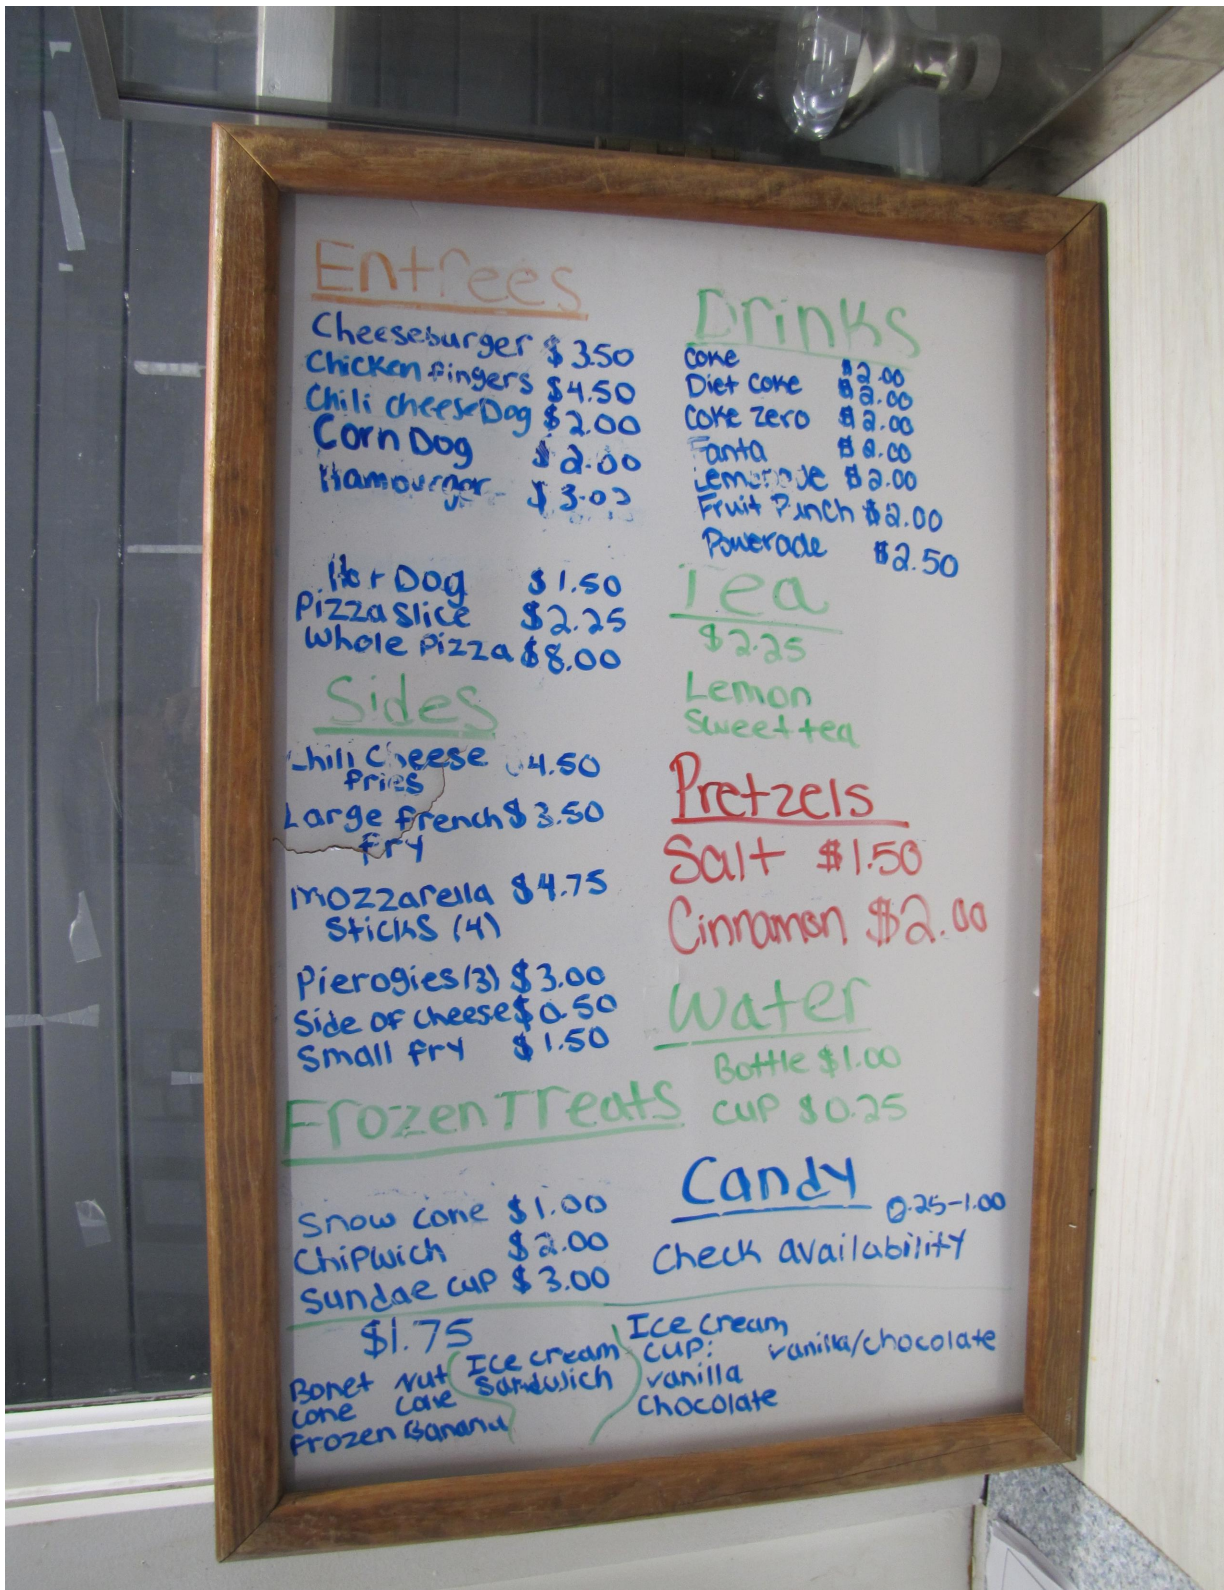 Entrees
Cheeseburger $3.50
Chicken fingers $4.50
Chili cheese Dog $2.00
Corn Dog $2.00
Hamburger $3.00
Hot Dog $1.50
Pizza slice $2.25
Whole pizza $8.00
Sides
Chili Cheese $4.50
fries
Large french $3.50
fry
mozzarella $4.75
Sticks (4)
Pierogies (3) $3.00
Side of cheese $0.50
Small fry $1.50
Frozen Treats
Snow cone $1.00
Chipwich $2.00
Sundae cup $3.00
$1.75
Bonet Nut
cone cone
Frozen Banana
Ice cream
Sandwich
Ice cream
cup:
vanilla
chocolate
vanilla/chocolate
Drinks
Coke $2.00
Diet Coke $2.00
Coke Zero $2.00
Fanta $2.00
Lemonade $2.00
Fruit Punch $2.00
Powerade $2.50
Tea
$2.25
Lemon
Sweet tea
Pretzels
Salt $1.50
Cinnamon $2.00
Water
Bottle $1.00
cup $0.25
Candy
0.25-1.00
Check availability